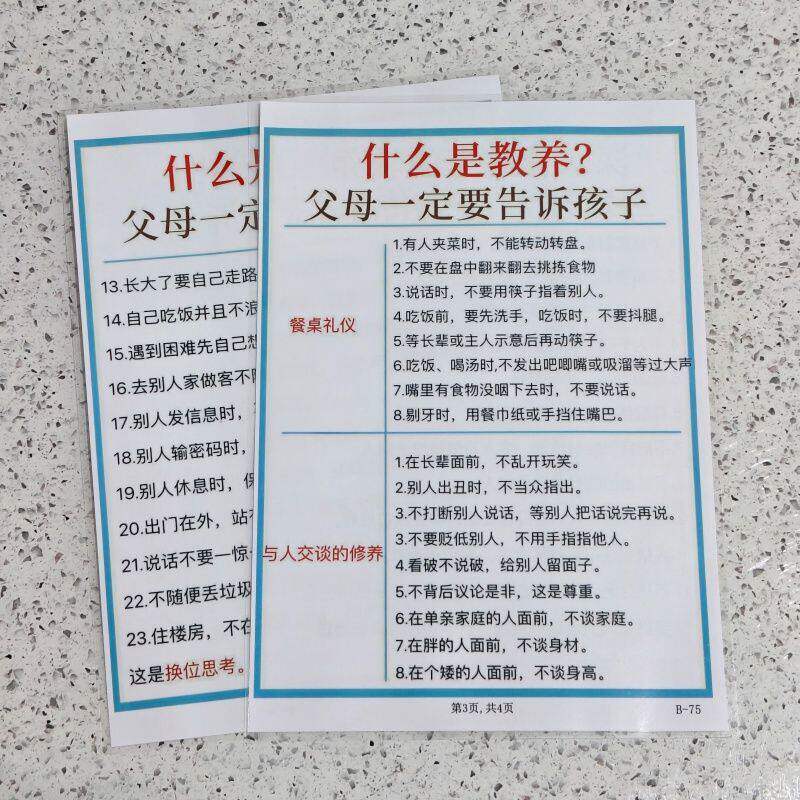 什么是
父母一定
13.长大了要自己走路
14.自己吃饭并且不浪
15.遇到困难先自己想
16.去别人家做客不随
17.别人发信息时，
18.别人输密码时，
19.别人休息时，保
20.出门在外，站有
21.说话不要一惊
22.不随便丢垃圾
23.住楼房，不在
这是换位思考。
什么是教养？
父母一定要告诉孩子
餐桌礼仪
1.有人夹菜时，不能转动转盘。
2.不要在盘中翻来翻去挑拣食物
3.说话时，不要用筷子指着别人。
4.吃饭前，要先洗手，吃饭时，不要抖腿。
5.等长辈或主人示意后再动筷子。
6.吃饭、喝汤时,不发出吧唧嘴或吸溜等过大声
7.嘴里有食物没咽下去时，不要说话。
8.剔牙时，用餐巾纸或手挡住嘴巴。
与人交谈的修养
1.在长辈面前，不乱开玩笑。
2.别人出丑时，不当众指出。
3.不打断别人说话，等别人把话说完再说。
3.不要贬低别人，不用手指指他人。
4.看破不说破，给别人留面子。
5.不背后议论是非，这是尊重。
6.在单亲家庭的人面前，不谈家庭。
7.在胖的人面前，不谈身材。
8.在个矮的人面前，不谈身高。
第3页,共4页
B-75